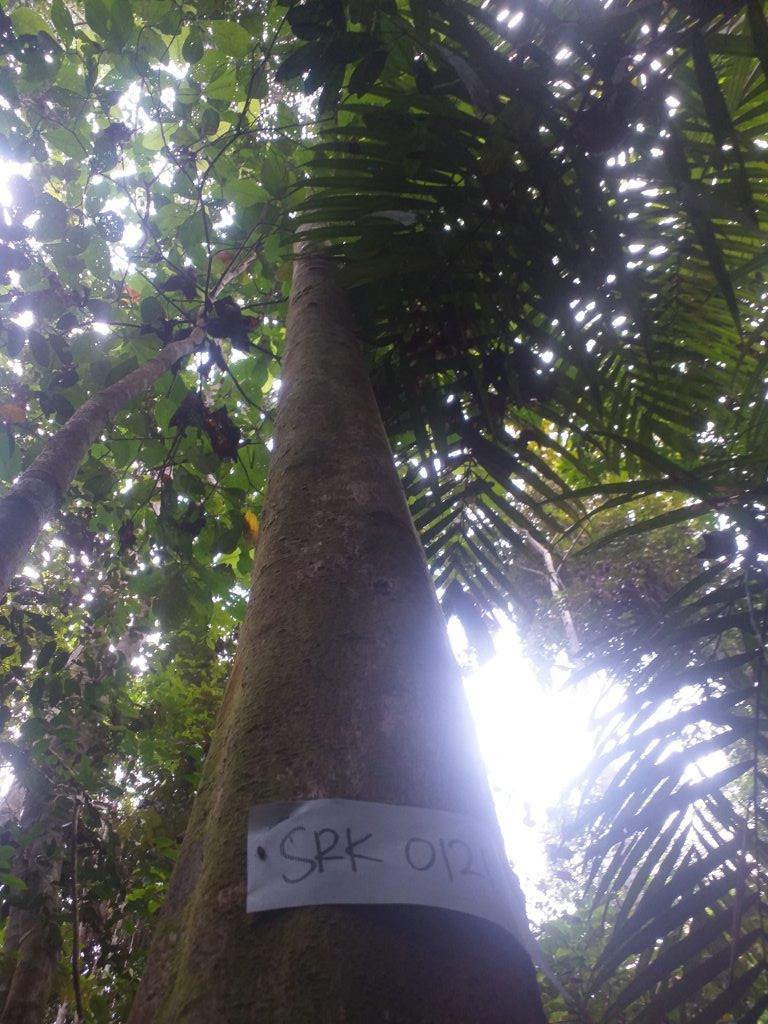 SRK 0121